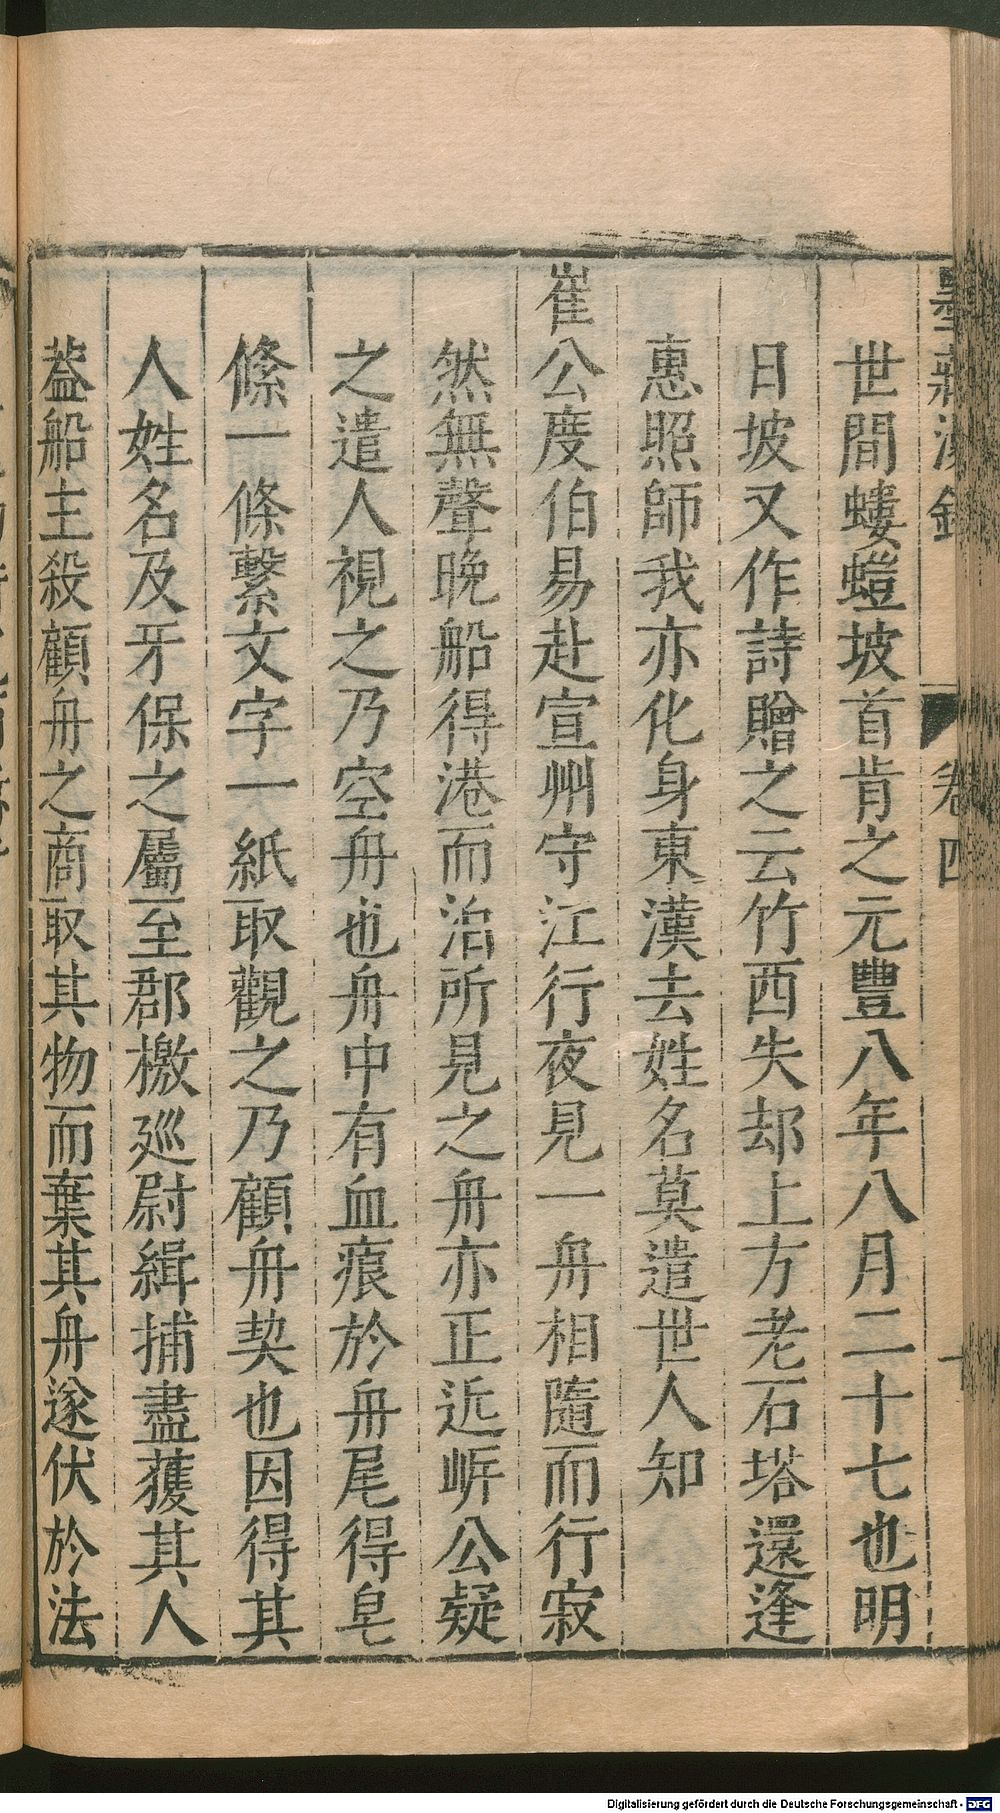 世間螻螘坡首肯之元豐八年八月二十七也明
日坡又作詩贈之云竹西失却上方老石塔還逢
惠照師我亦化身東漢去姓名莫遣世人知
崔公度伯易赴宣州守江行夜見一舟相隨而行寂
然無聲晚船得港而泊所見之舟亦正近岍公疑
之遣人視之乃空舟也舟中有血痕於舟尾得皂
絛一條繫文字一紙取觀之乃顧舟契也因得其
人姓名及牙保之屬至郡檄廵尉緝捕盡獲其人
葢船主殺顧舟之商取其物而葉其舟遂伏於法
卷四
Digitalisierung gefördert durch die Deutsche Forschungsgemeinschaft - DFG